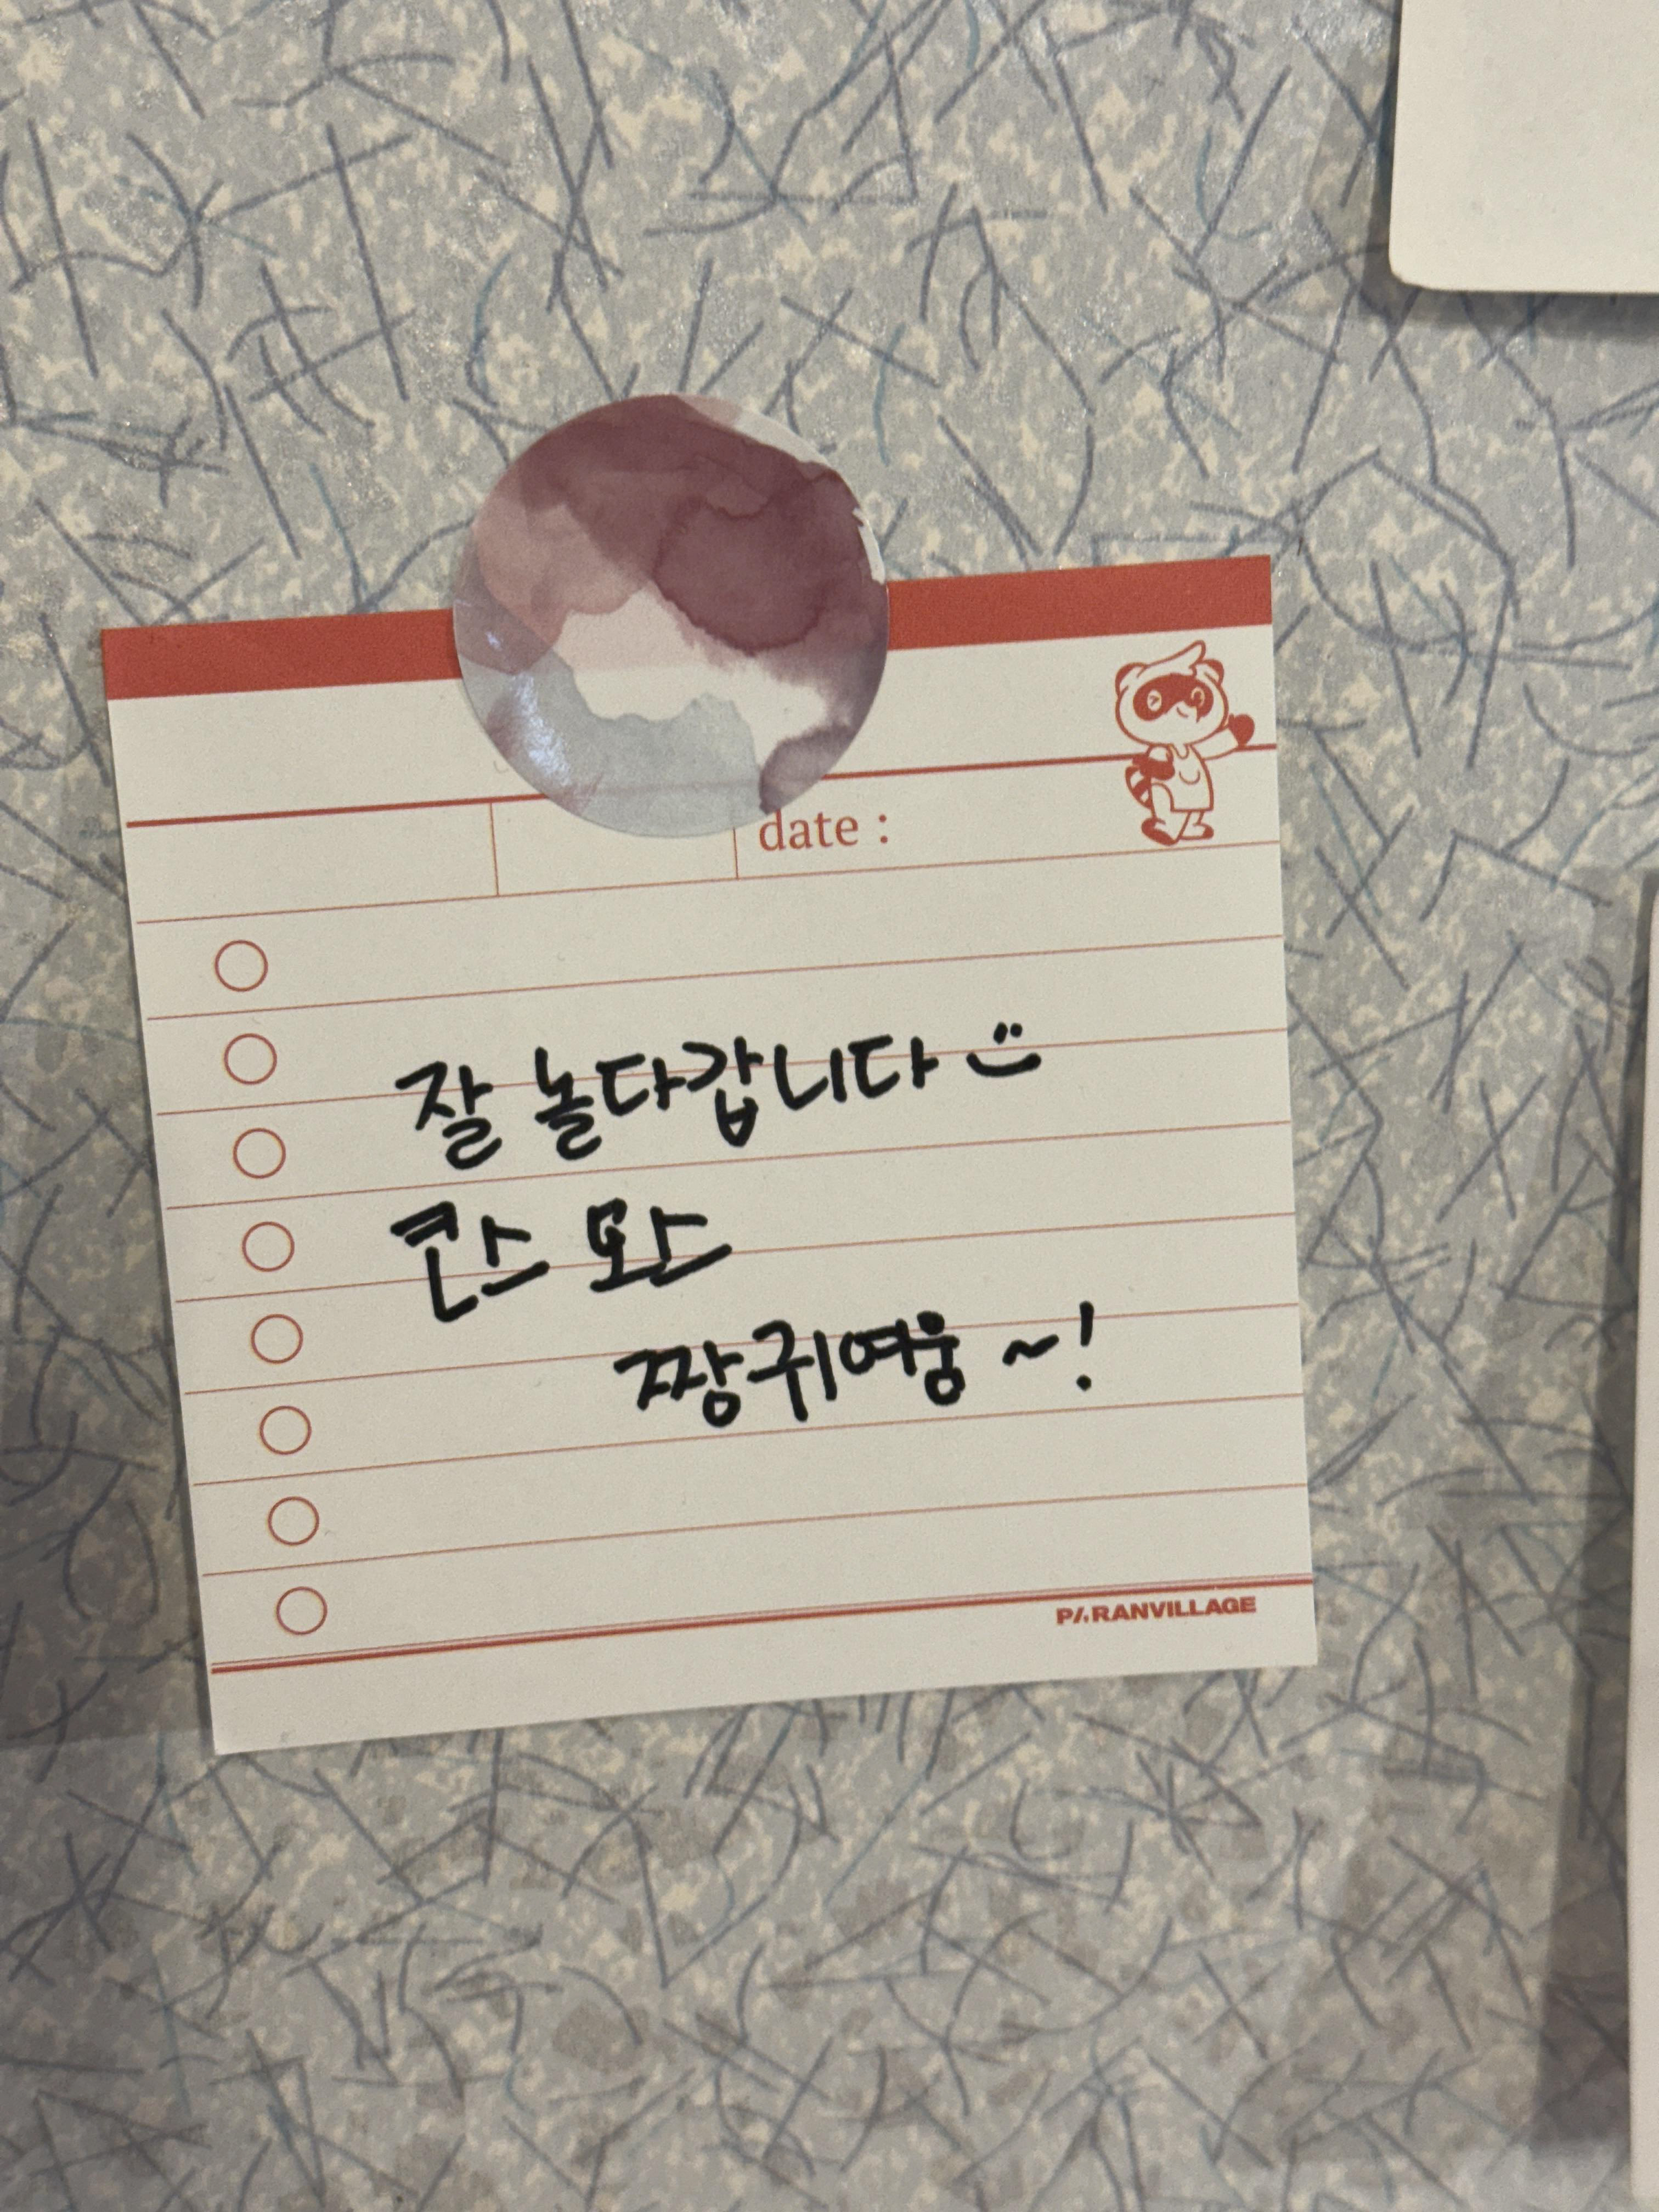 date :
잘 놀다갑니다
짱귀여웅 ~!
PARANVILLAGE